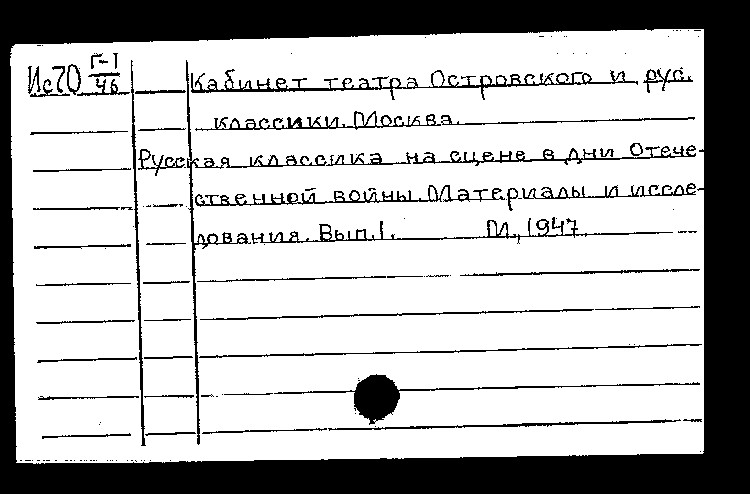 Ис70 Г-1/46 Кабинет театра Островского и рус.
классики. Москва.
Русская классика на сцене в дни Отече-
ственной войны. Материалы и иссле-
дования. Вып.1. М., 1947